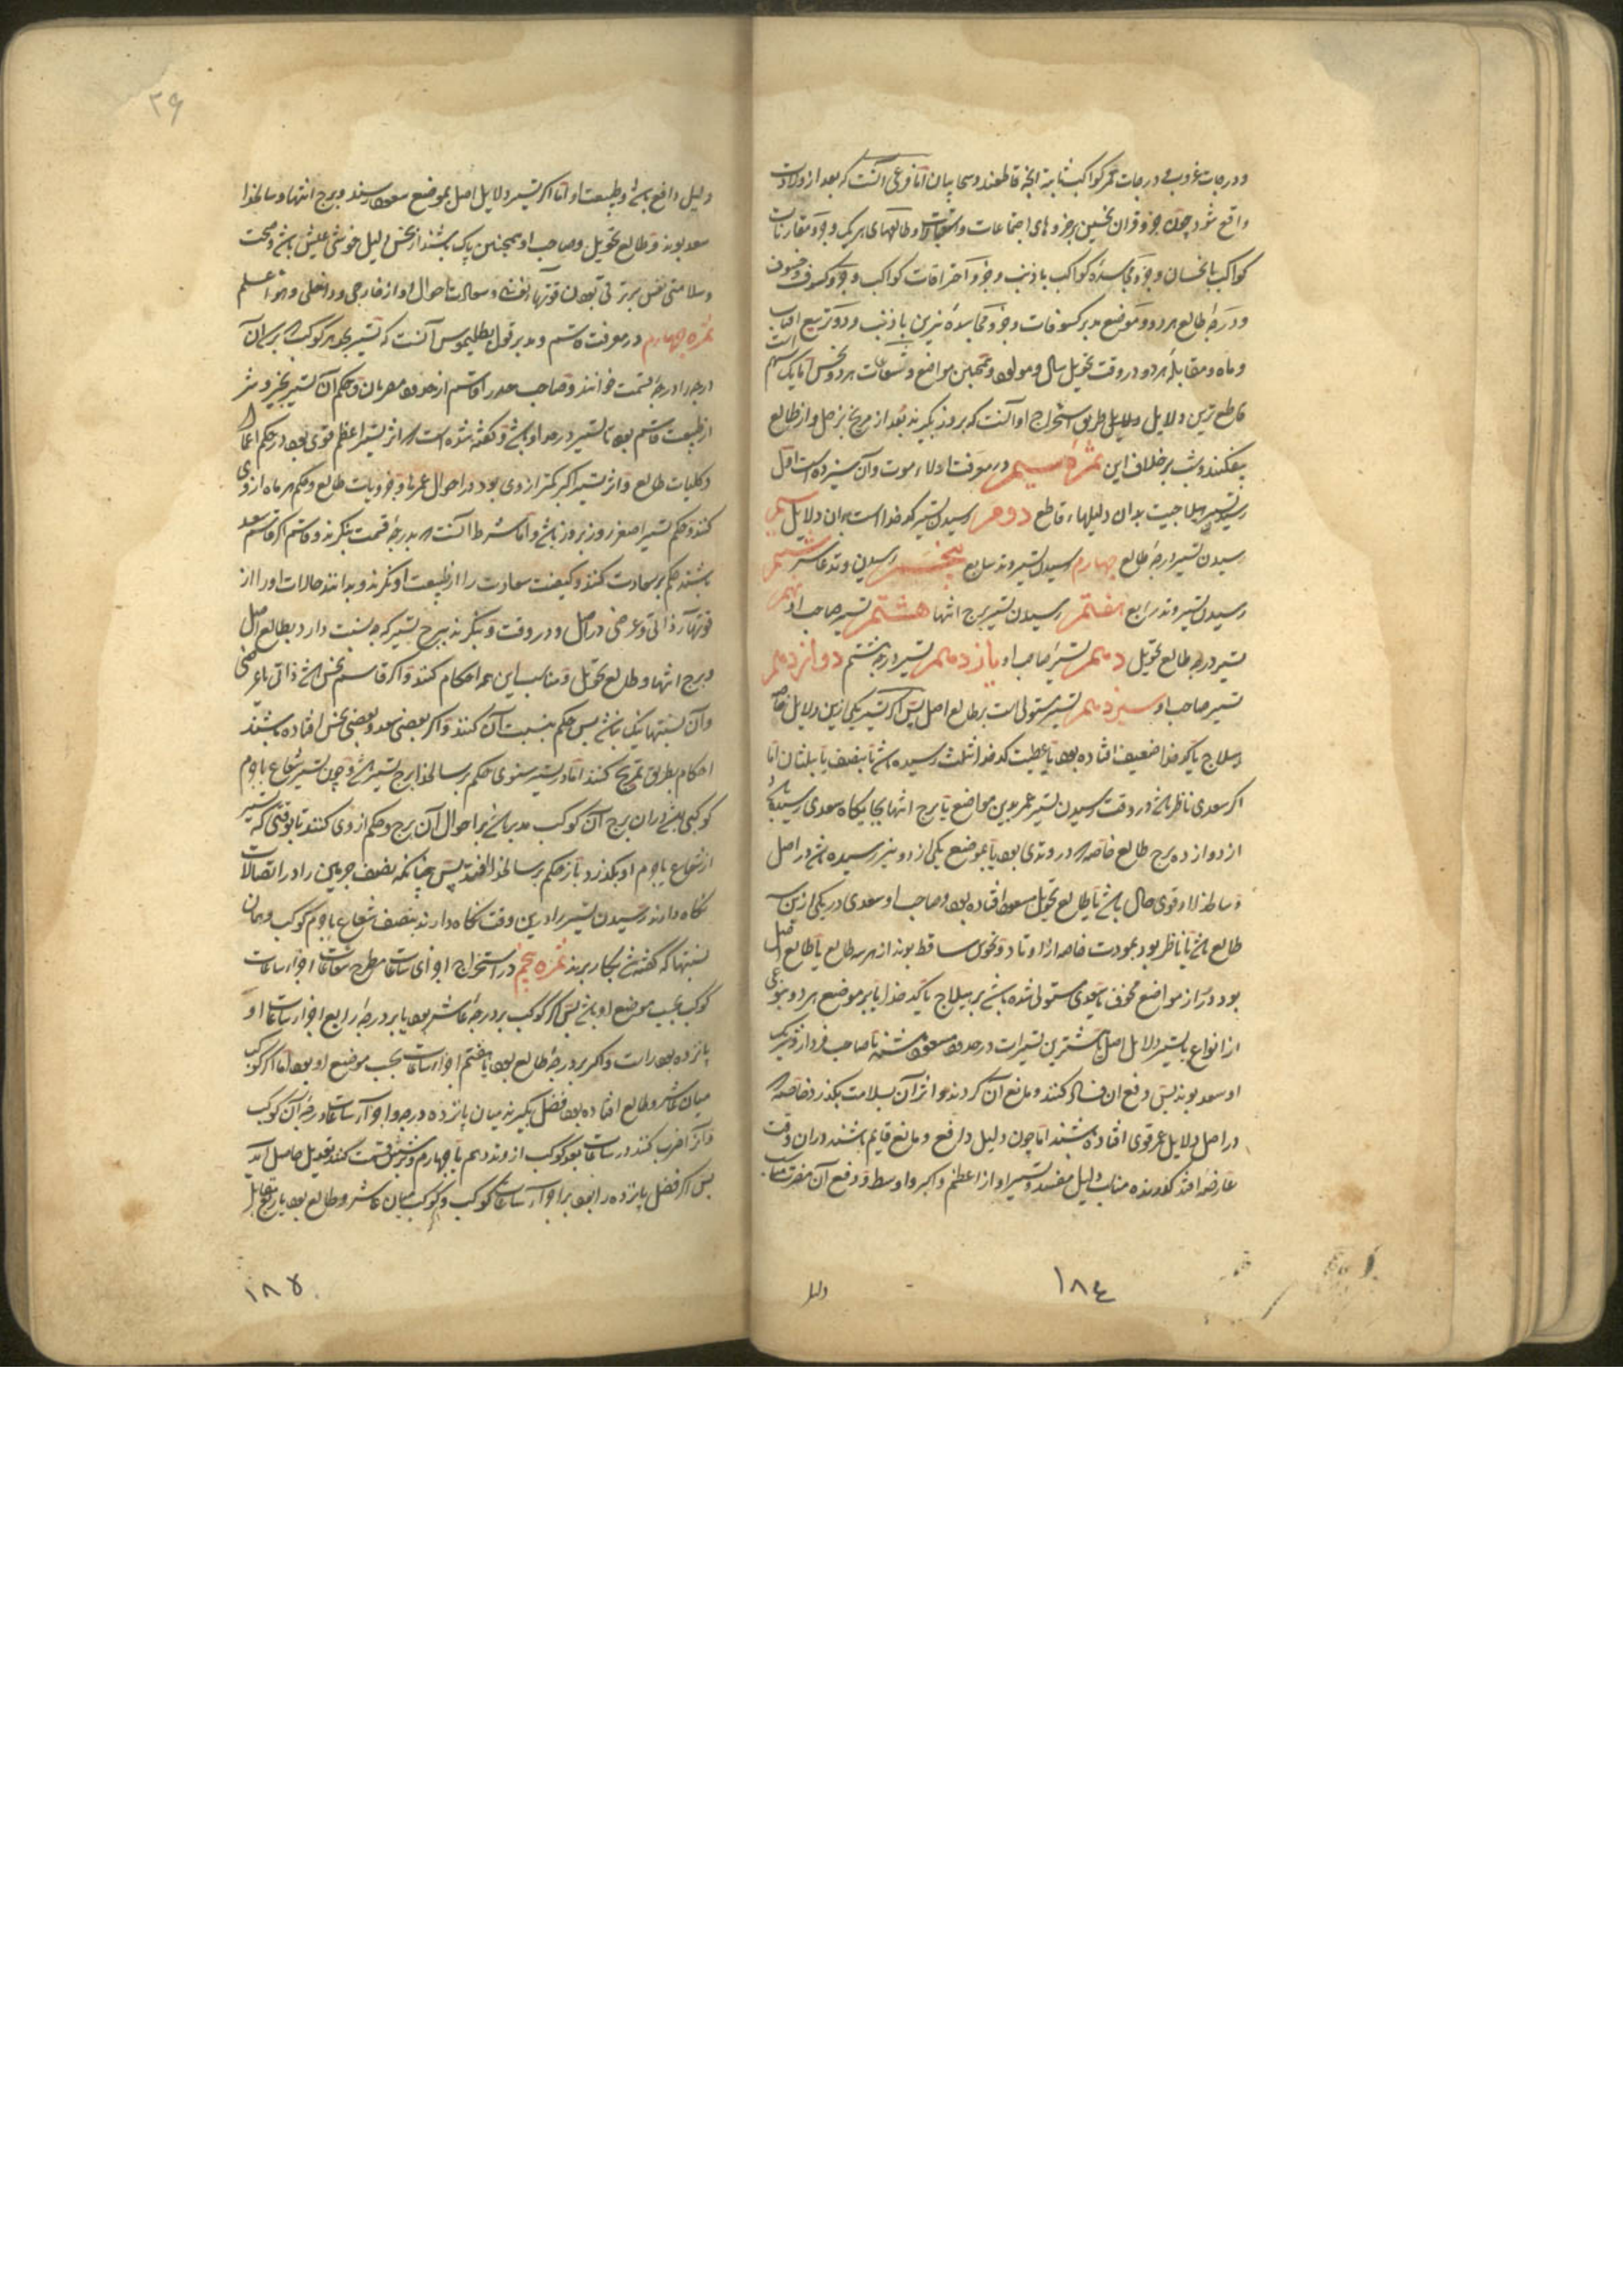 ودرجات غروب ودرجات ممر کواکب ثابته انچه قاطعند وسحابیان اما فرعی آنست که بعد از ولادت
واقع شود چون جزو قران نحسین وجزوهای اجتماعات واستقبالات وطالعهای هریک وجزو مقارنات
کواکب با نحسان وجزو مجاسده کواکب با ذنب وجزو احتراقات کواکب وجزو کسوف وخسوف
ودرجه طالع هر دو وموضع مدبر کسوفات وجزو مجاسده نیرین با ذنب ودو تربیع افتاب
وماه ومقابله هر دو در وقت تحویل سال ومولود وهمچنین مواضع وشعاعات هر دو نحس اما یک سهم است
قاطع ترین دلایل وطریق استخراج او آنست که بروز بگیرند بعد از مریخ بزحل واز طالع
بیفکنند وشب برخلاف این ثمره سیم در معرفت ادلاء موت وآن سیزده است اول
رسیدن تسییر هیلاجیت بدان دلیلهاء قاطع دوم رسیدن تسییر کدخدا است بدان دلایل سیم
رسیدن تسییر درجه طالع چهارم رسیدن تسییر وتد سابع پنجم رسیدن وتد عاشر ششم
رسیدن تسییر وتد رابع هفتم رسیدن تسییر برج انتها هشتم تسییر صاحب او نهم
تسییر درجه طالع تحویل دهم تسییر صاحب او یازدهم تسییر درجه هشتم دوازدهم
تسییر صاحب او سیزدهم تسییر مستولی است بر طالع اصل پس اکر تسییر یکی ازین دلایل خاصه
هیلاج یا کدخدا ضعیف افتاده بود یا عطیت کدخدا بثلث رسیده باشد یا بنصف یا بثلثان اما
اکر سعدی ناظر باشد در وقت رسیدن تسییر عمر بدین مواضع یا برج انتها بجایکاه سعدی رسیده باشد
از دوازده برج طالع خاصه که در وتدی بود یا بموضع یکی از دو نیر رسیده باشد در اصل
وسالخداه قوی حال باشد یا طالع تحویل مسعود افتاده بود وصاحب او سعدی در یکی ازین سه
طالع باشد یا ناظر بود بمودت خاصه از اوتاد ونحوس ساقط بوند از هر سه طالع یا طالع اصل قبل
بود دور از مواضع مخوف یا سعدی مستولی شده باشد بر هیلاج یا کدخدا یا بر موضع هر دو بنوعی
از انواع یا تسییر دلایل اصل یا بیشترین تسییرات در حدود سعود باشند یا صاحب فردار وشریک
او سعد بوند پس دفع ان فساد کنند ومانع آن کردند واثر آن بسلامت بکذرد خاصه که
در اصل دلایل عمر قوی افتاده باشند اما چون دلیل دافع ومانع قایم باشند دران وقت
عارضه افتد کذرنده مناسب دلیل مفسد وتسییر او از اعظم واکبر واوسط ودفع آن مضرت مناسب
دلیل
۱۸٤
۲۶
دلیل دافع باشد وطبیعت او اما اکر تسییر دلایل اصل بموضع سعود رسند وبرج انتها وسالخدا
سعد بوند وطالع تحویل وصاحب او همچنین پاک باشند از نحس دلیل خوشی عیش باشد وصحت
وسلامتی نفس برترقی بودن قوتهاء نفس وسعادت احوال او از خارجی وداخلی وهو اعلم
ثمره چهارم در معرفت قاسم ومدبر قول بطلیموس آنست که تسییر بحد هر کوکب که برسد آن
درجه را درجه قسمت خوانند وصاحب حد را قاسم از حدود مصریان وحکم آن تسییر بخیر وشر
از طبیعت قاسم بود تا تسییر در حد او باشد وکفته شده است که اثر تسییر اعظم قوی بود در حکم اعمار
وکلیات طالع واثر تسییر اکبر کمتر از وی بود در احوال عمرها وجزویات طالع وحکم هر ماه از وی
کنند وحکم تسییر اصغر روز بروز باشد واما شرط آنست که بدرجه قسمت بنکرند وقاسم اکر قاسم سعد
باشند حکم بر سعادت کنند وکیفیت سعادت را از طبیعت او نکرند وبدانند حالات او را از
قوتهاء ذاتی وعرضی در اصل ودر وقت وبنکرند ببرج تسییر که چه نسبت دارد بطالع اصل
وبرج انتها وطالع تحویل ومناسب این همه احکام کنند واکر قاسم نحس باشد ذاتی یا عرضی
وآن نسبتها نیک نباشد پس حکم بنسبت آن کنند واکر بعضی سعد وبعضی نحس افتاده باشند
احکام بطریق تمزیج کنند اما در تسییر سنوی حکم بر سالخدا برج تسییر باشد وچون تسییر بشعاع یا جرم
کوکبی باشد دران برج آن کوکب مدبر باشد بر احوال آن برج وحکم از وی کنند تا بوقتی که تسییر
از شعاع یا جرم او بکذرد باز حکم بر سالخدا افتد پس چنانکه نصف جرمین را در اتصالات
نکاه دارند رسیدن تسییر را درین وقت نکاه دارند بنصف شعاع یا جرم کوکب وهمان
نسبتها که کفته شد بکار برند ثمره پنجم در استخراج اجزای ساعات مطرح شعاعات اجزاء ساعات
کوکب بحسب موضع او باشد پس اکر کوکب بر درجه عاشر بود یا بر درجه رابع اجزاء ساعات او
پانزده بود راست واکر بر درجه طالع بود یا هفتم اجزاء ساعات بحسب موضع او بود اما اکر کوکب
میان عاشر وطالع افتاده بود فضل بکیرند میان پانزده درجه واجزاء ساعات درجه آن کوکب
وآنرا ضرب کنند در ساعات بعد کوکب از وتد دهم یا چهارم وبر شش قسمت کنند تعدیل حاصل آید
پس اکر فضل پانزده را بود بر اجزاء ساعات کوکب وکوکب میان عاشر وطالع بود یا ربع مقابل
۱۸۵